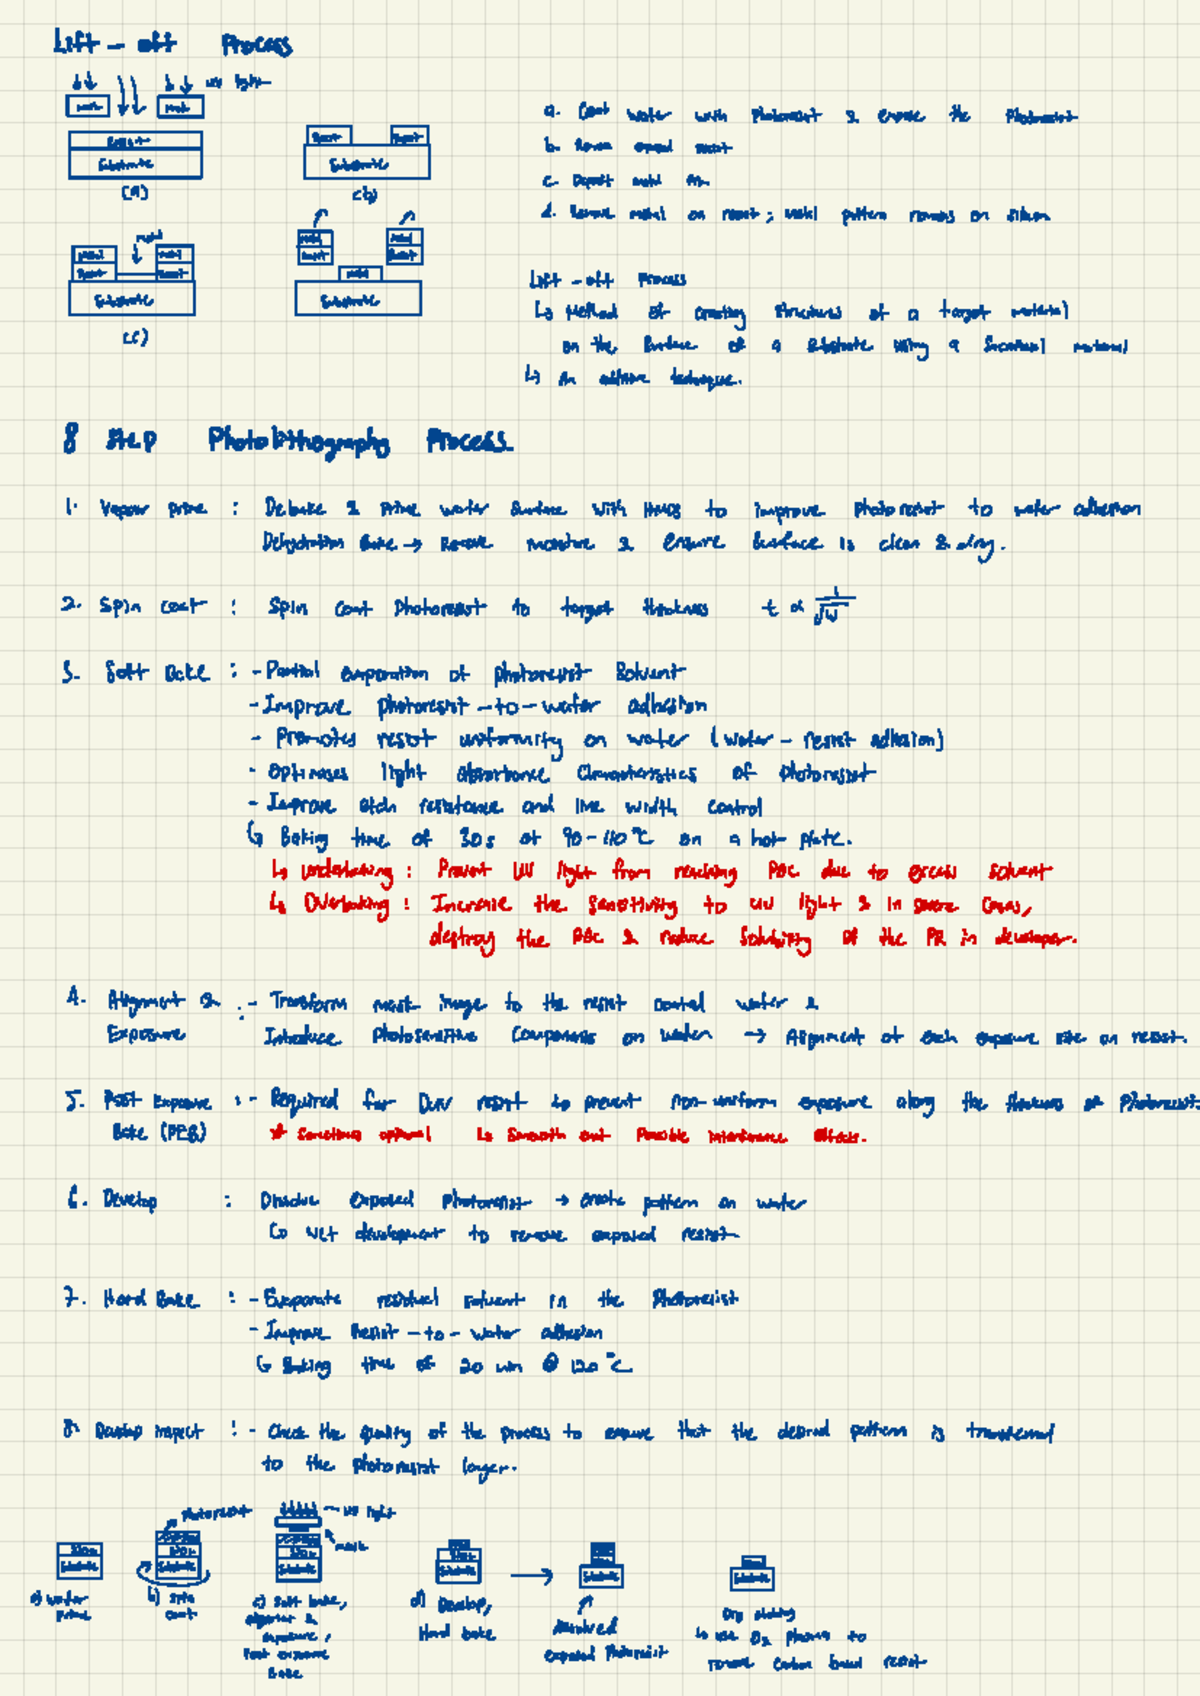 Lift-off Process
uv light
mask mask
Resist
Substrate
(a)
Resist Resist
Substrate
(b)
metal
metal metal
Resist Resist
Substrate
(c)
metal metal
Resist Resist
metal
Substrate
a. Coat wafer with photoresist & expose the photoresist
b. Remove exposed resist
c. Deposit metal film
d. Remove metal on resist; metal pattern remains on silicon
Lift-off Process
↳ Method of creating structures of a target material
on the surface of a substrate using a sacrificial material
↳ An additive technique.
8 Step Photolithography Process
1. Vapour prime : Debake & Prime wafer surface with HMDS to improve photoresist to wafer adhesion
Dehydration Bake → Remove moisture & ensure surface is clean & dry.
2. Spin coat : Spin coat photoresist to target thickness t ∝ 1/√w
3. Soft Bake : - Partial evaporation of photoresist solvent
- Improve photoresist-to-wafer adhesion
- Promotes resist uniformity on wafer (wafer-resist adhesion)
- Optimises light absorbance characteristics of photoresist
- Improve etch resistance and line width control
↳ Baking time of 30s at 90-110°C on a hot plate.
↳ Underbaking : Prevent UV light from reaching PAC due to excess solvent
↳ Overbaking : Increase the sensitivity to UV light & in severe cases,
destroy the PAC & reduce solubility of the PR in developer.
4. Alignment & : - Transform mask image to the resist coated wafer &
Exposure Introduce Photosensitive Components on wafer → Alignment of each exposure site on resist.
5. Post Exposure : - Required for DUV resist to prevent non-uniform exposure along the thickness of photoresist
Bake (PEB) * Sometimes optional ↳ Smooth out possible interference effects.
6. Develop : Dissolve exposed photoresist → create pattern on wafer
↳ Wet development to remove exposed resist
7. Hard Bake : - Evaporate residual solvent in the photoresist
- Improve Resist-to-wafer adhesion
↳ Baking time of 20 min @ 120°C
8. Develop inspect : - Check the quality of the process to ensure that the desired pattern is transferred
to the photoresist layer.
Substrate
a) Wafer
Prime
photoresist
Substrate
b) Spin
coat
uv light
mask
Substrate
c) Soft bake,
alignment &
exposure,
Post exposure
Bake
Substrate
d) Develop,
Hard bake
Substrate
dissolved
exposed photoresist
Substrate
Dry etching
↳ use O2 plasma to
remove carbon based resist